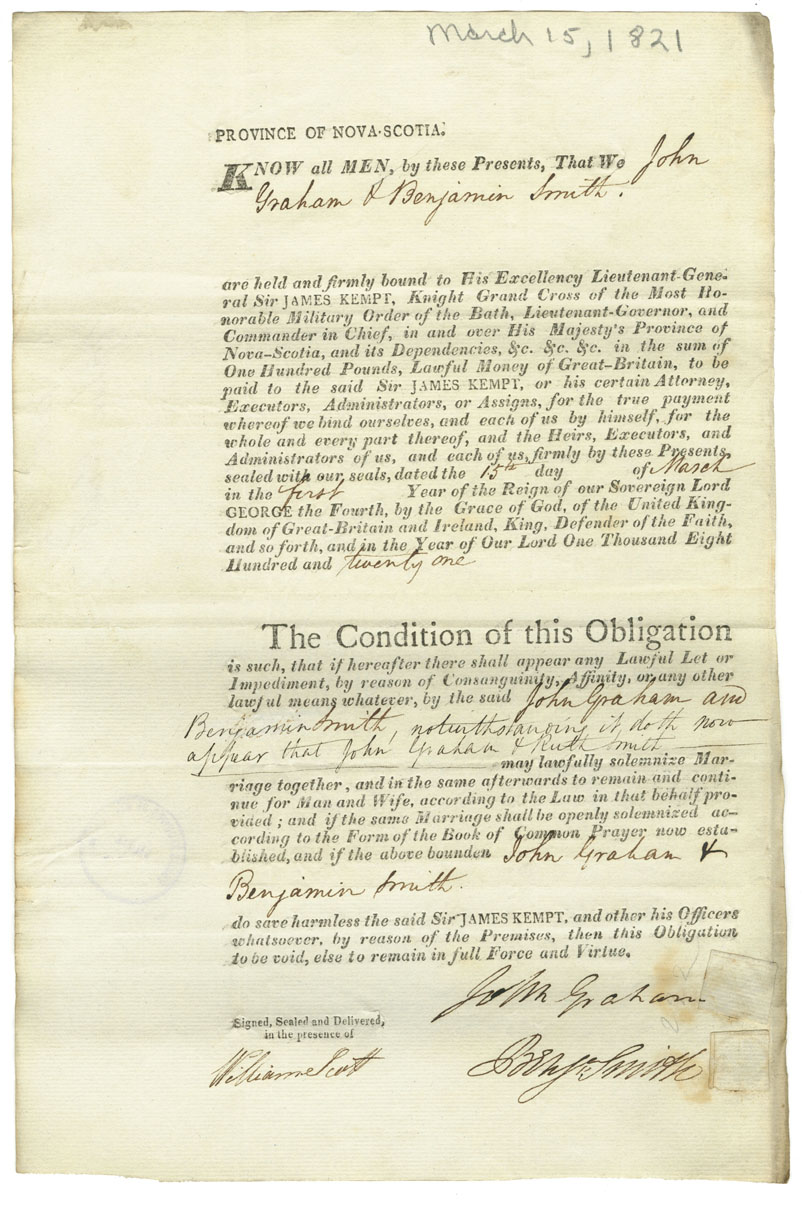 March 15, 1821
PROVINCE OF NOVA-SCOTIA.
KNOW all MEN, by these Presents, That We John
Graham & Benjamin Smith.
are held and firmly bound to His Excellency Lieutenant-Gene-
ral Sir JAMES KEMPT, Knight Grand Cross of the Most Ho-
norable Military Order of the Bath, Lieutenant-Governor, and
Commander in Chief, in and over His Majesty's Province of
Nova-Scotia, and its Dependencies, &c. &c. &c. in the sum of
One Hundred Pounds, Lawful Money of Great-Britain, to be
paid to the said Sir JAMES KEMPT, or his certain Attorney,
Executors, Administrators, or Assigns, for the true payment
whereof we bind ourselves, and each of us by himself, for the
whole and every part thereof, and the Heirs, Executors, and
Administrators of us, and each of us, firmly by these Presents,
sealed with our seals, dated the 15th day of March
in the first Year of the Reign of our Sovereign Lord
GEORGE the Fourth, by the Grace of God, of the United King-
dom of Great-Britain and Ireland, King, Defender of the Faith,
and so forth, and in the Year of Our Lord One Thousand Eight
Hundred and twenty one
The Condition of this Obligation
is such, that if hereafter there shall appear any Lawful Let or
Impediment, by reason of Consanguinity, Affinity, or any other
lawful means whatever, by the said John Graham and
Benjamin Smith, notwithstanding it doth now
appear that John Graham & Ruth Smith
may lawfully solemnize Mar-
riage together, and in the same afterwards to remain and conti-
nue for Man and Wife, according to the Law in that behalf pro-
vided; and if the same Marriage shall be openly solemnized ac-
cording to the Form of the Book of Common Prayer now esta-
blished, and if the above bounden John Graham &
Benjamin Smith.
do save harmless the said Sir JAMES KEMPT, and other his Officers
whatsoever, by reason of the Premises, then this Obligation
to be void, else to remain in full Force and Virtue.
John Graham
Signed, Sealed and Delivered,
in the presence of
William Scott
Benjn Smith